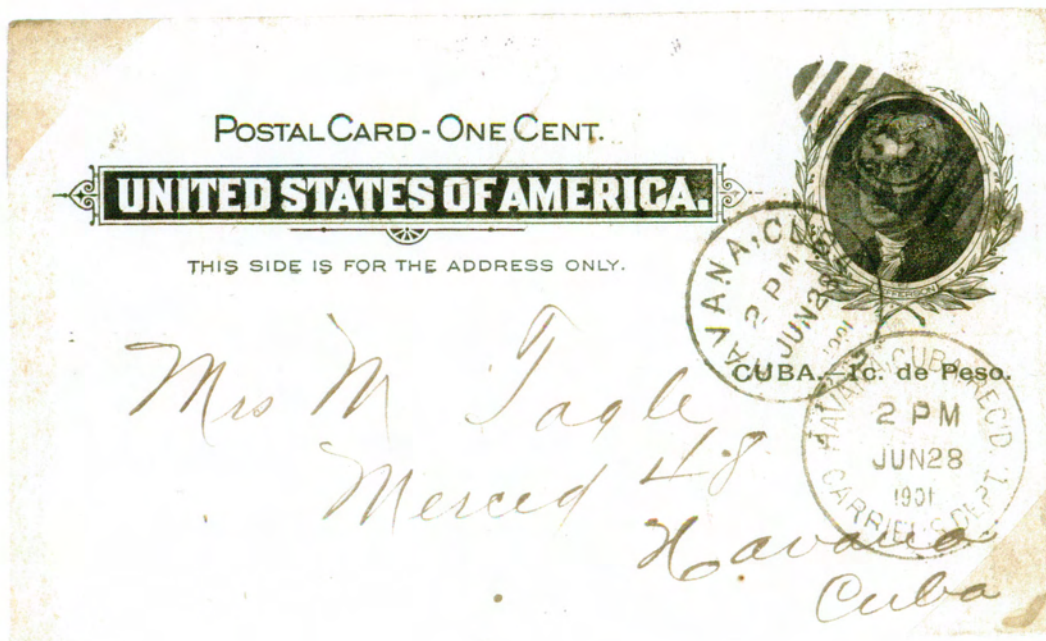 POSTAL CARD - ONE CENT.
UNITED STATES OF AMERICA.
THIS SIDE IS FOR THE ADDRESS ONLY.
JEFFERSON
HAVANA, CUBA
2 PM
JUN 28
1901
CUBA.—1c. de Peso.
HAVANA, CUBA, REC'D.
2 PM
JUN 28
1901
CARRIER'S DEPT.
Mrs M Tagle
Merced 48
Havana
Cuba